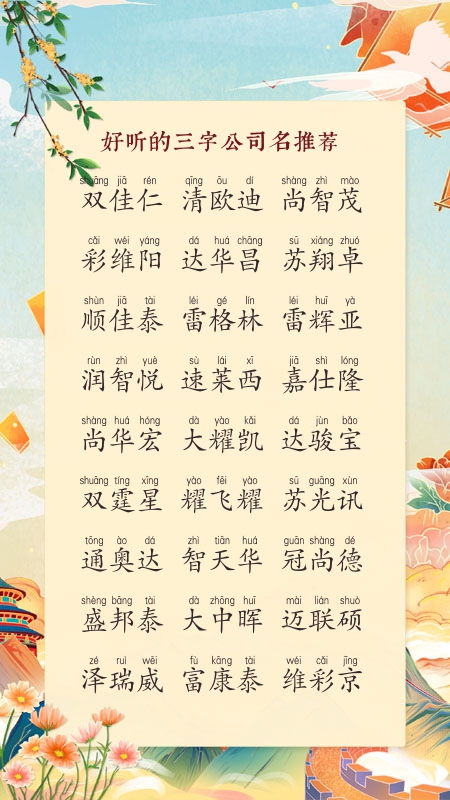 好听的三字公司名推荐
shuāng jiā rén qīng ōu dí shàng zhì mào
双佳仁 清欧迪 尚智茂
cǎi wéi yáng dá huá chāng sū xiáng zhuó
彩维阳 达华昌 苏翔卓
shùn jiā tài léi gé lín léi huī yà
顺佳泰 雷格林 雷辉亚
rùn zhì yuè sù lái xī jiā shì lóng
润智悦 速莱西 嘉仕隆
shàng huá hóng dà yào kǎi dá jùn bǎo
尚华宏 大耀凯 达骏宝
shuāng tíng xīng yào fēi yào sū guāng xùn
双霆星 耀飞耀 苏光讯
tōng ào dá zhì tiān huá guān shàng dé
通奥达 智天华 冠尚德
shèng bāng tài dà zhōng huī mài lián shuò
盛邦泰 大中晖 迈联硕
zé ruì wēi fù kāng tài wéi cǎi jīng
泽瑞威 富康泰 维彩京